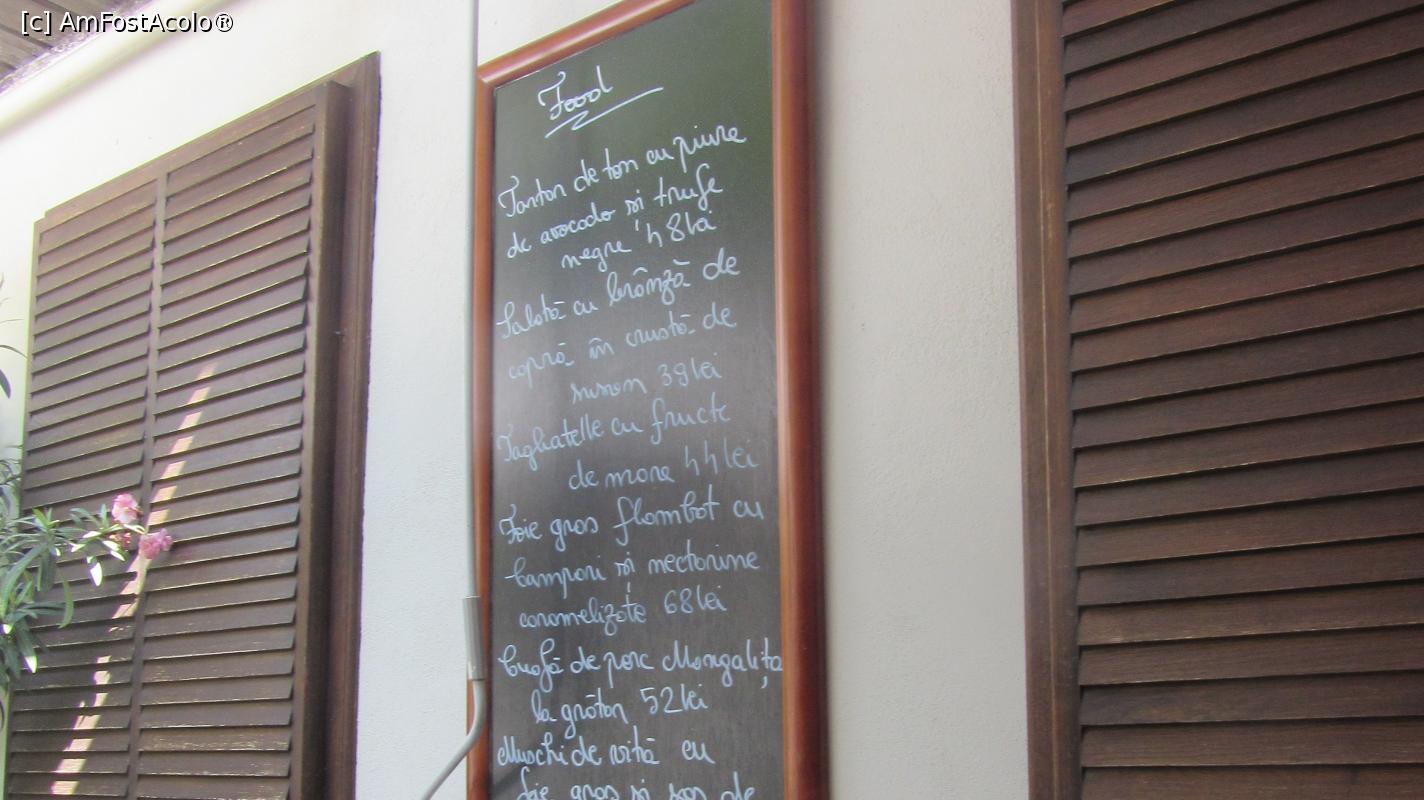 [c] AmFostAcolo®
Food
Tartar de ton cu piure
de avocado și trufe
negre 48 lei
Salată cu brânză de
capră în crustă de
susan 39 lei
Tagliatelle cu fructe
de mare 44 lei
Foie gras flambat cu
campari și nectarine
caramelizate 68 lei
Ceafă de porc Mangalița
la grătar 52 lei
Mușchi de vită cu
foie gras și sos de